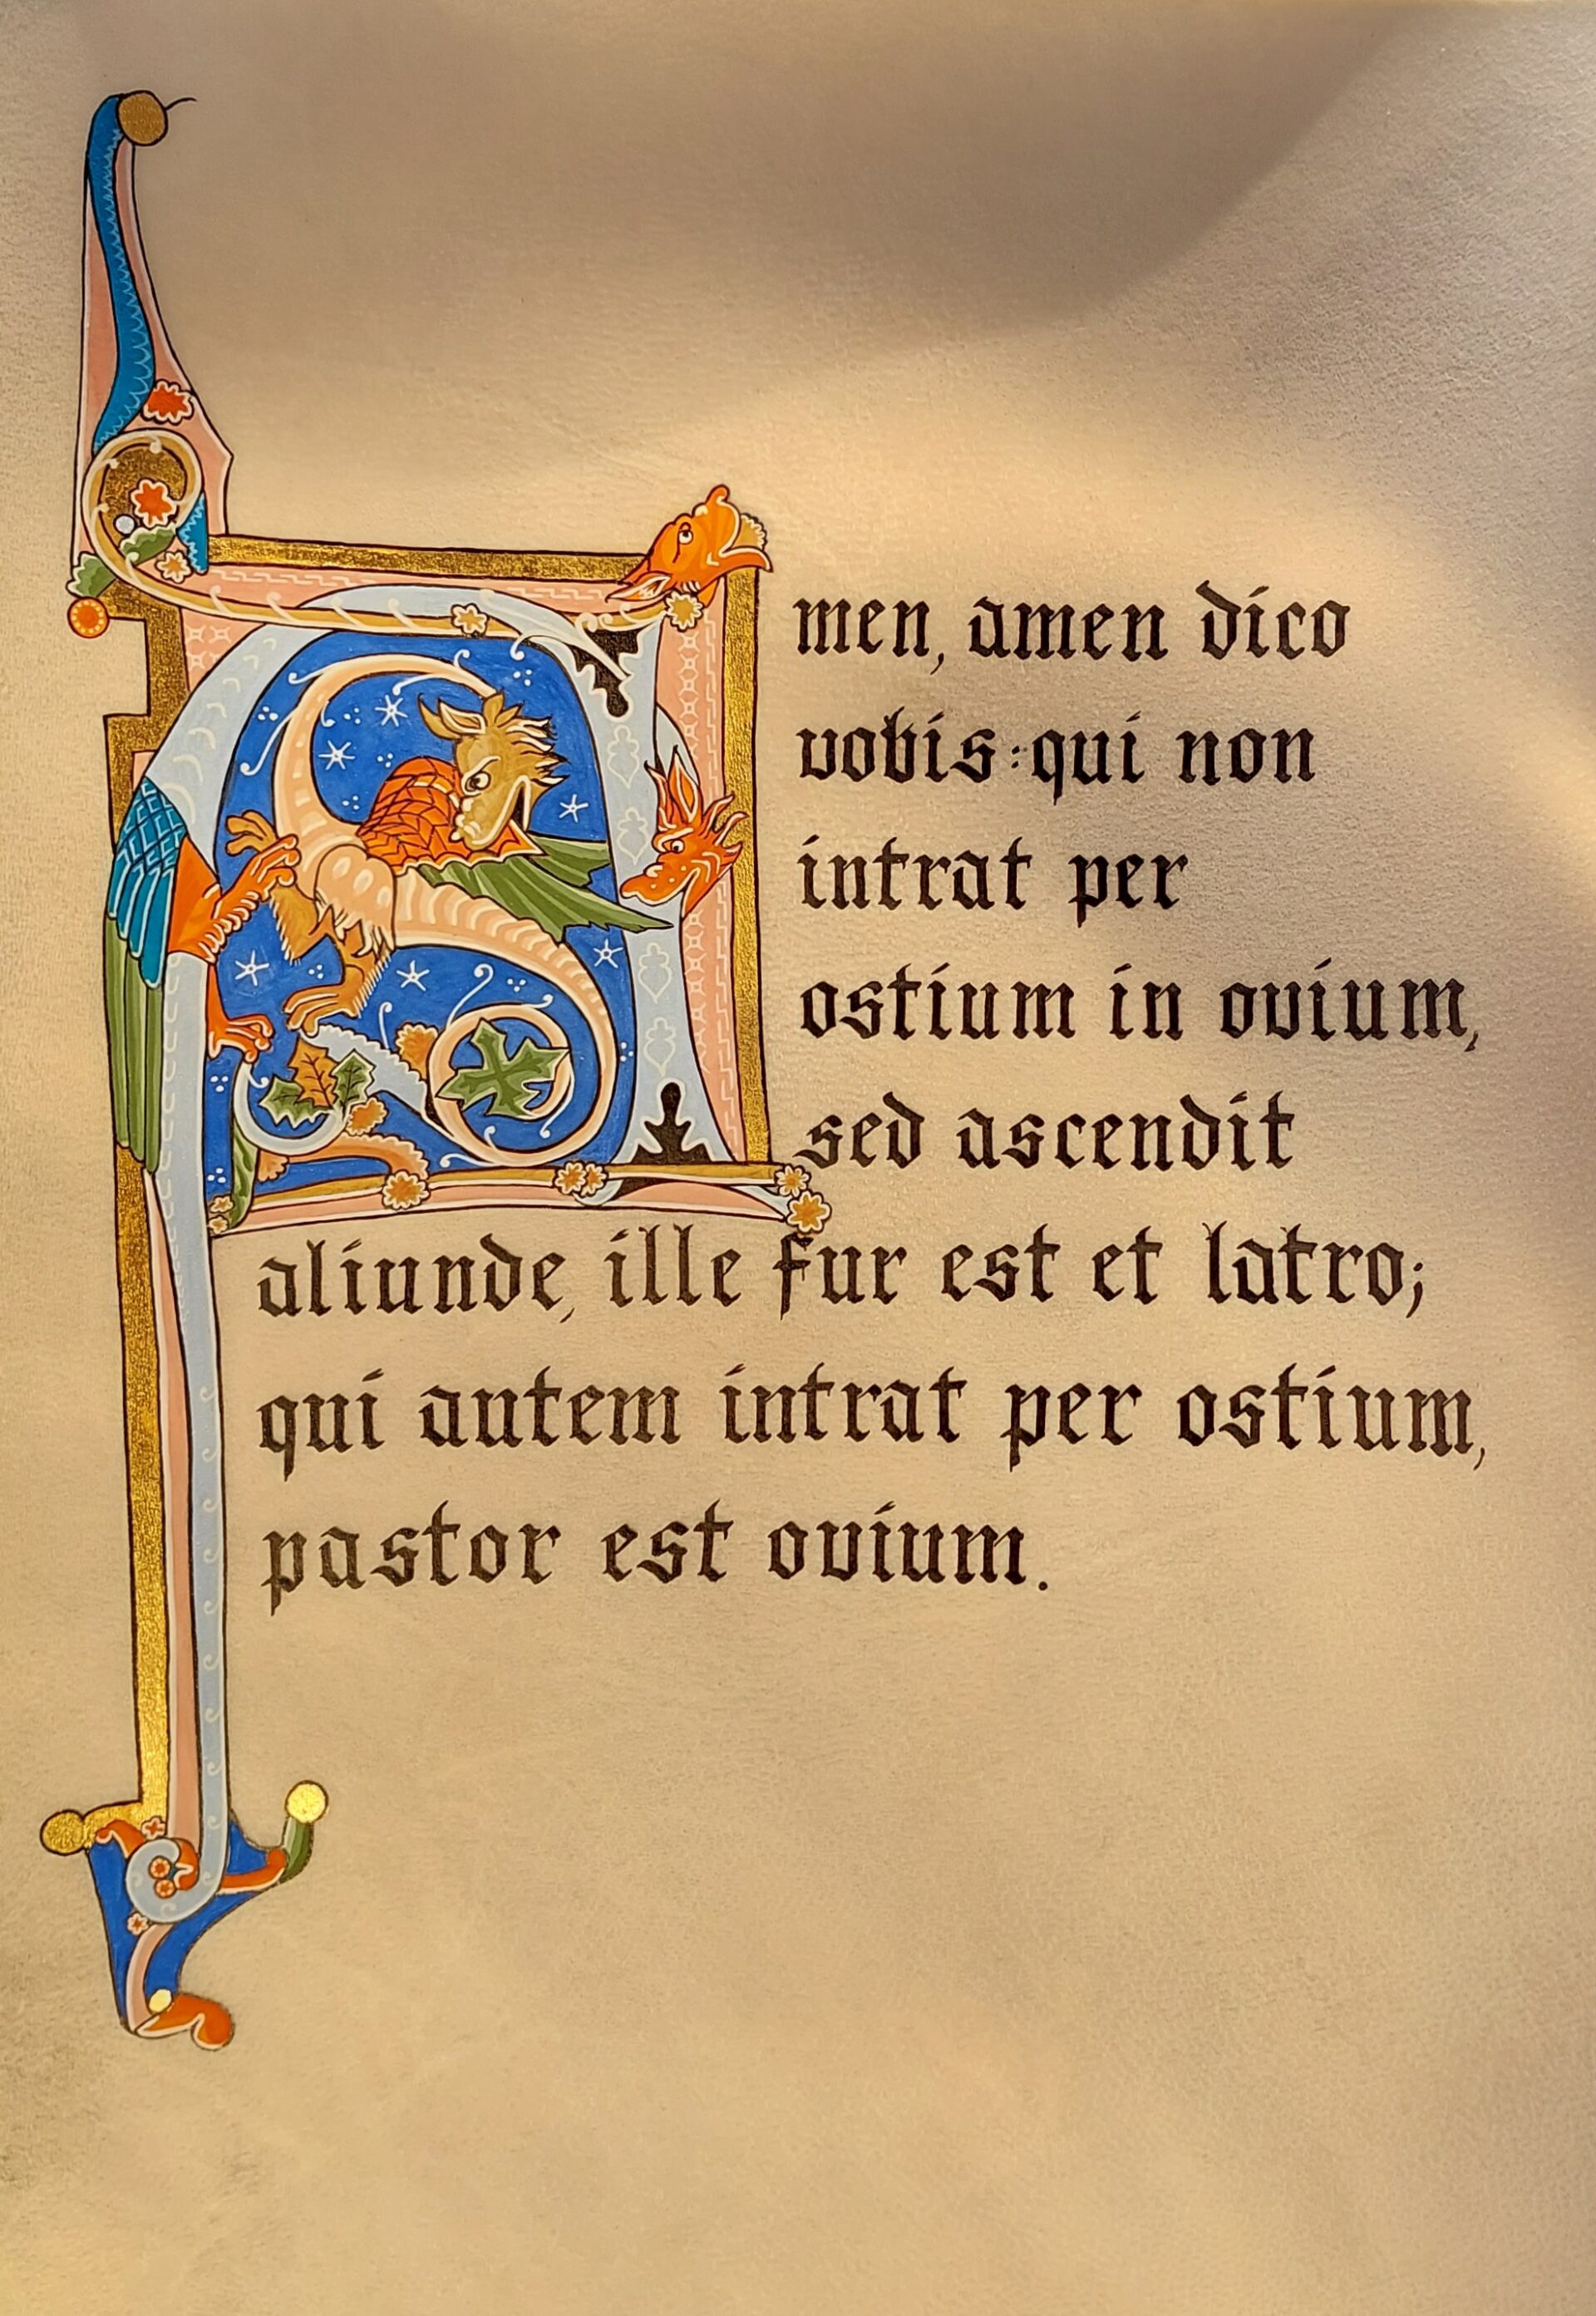 Amen, amen dico
vobis: qui non
intrat per
ostium in ovium,
sed ascendit
aliunde, ille fur est et latro;
qui autem intrat per ostium,
pastor est ovium.